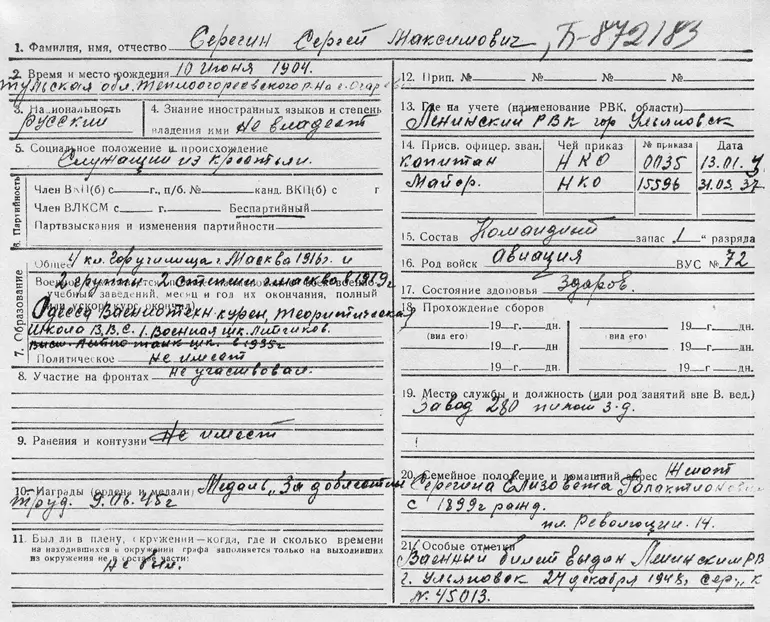 1. Фамилия, имя, отчество Серегин Сергей Максимович, Б-872183
2. Время и место рождения 10 июня 1904.
Тульская обл. Теплоогоревского р-на с.
3. Национальность
Русский
4. Знание иностранных языков и степень
владения ими Не владеет
5. Социальное положение и происхождение
Служащий из крестьян.
6. Партийность
Член ВКП(б) с — г., п/б. № канд. ВКП(б) с г
Член ВЛКСМ с — г. Беспартийный
Партвзыскания и изменения партийности
7. Образование
Общее 4 кл. Горучилища г. Москва 1916г. и
2 группы 2 ступени г. Москва в 1919г
учебных заведений, месяц и год их окончания, полный
Одесса курсы, Теоритическая
Школа В.В.С. 1. Военная шк. Летчиков.
шк. в 1935г
Политическое не имеет
8. Участие на фронтах не участвовал.
9. Ранения и контузии Не имеет
10. Награды (ордена и медали) Медаль „За доблестный
труд. 9.
11. Был ли в плену, окружении—когда, где и сколько времени
на находившихся в окружении графа заполняется только на выходивших
из окружения не в составе части:
Не был.
12. Прип. № № № №
13. Где на учете (наименование РВК, области)
Ленинский РВК гор Ульяновск
14. Присв. офицер. зван. Чей приказ № приказа Дата
Копитан НКО 0035 13.01.
Майор. НКО 15596 31.03.37
15. Состав Командный запас 1 разряда
16. Род войск Авиация ВУС № 72
17. Состояние здоровья Здоров.
18. Прохождение сборов
19—г.—дн. 19—г.—дн.
(вид его) 19—г.—дн. (вид его) 19—г.—дн.
19—г. дн. 19—г.—дн.
19. Место службы и должность (или род занятий вне В. вед.)
Завод 280 з-д.
20. Семейное положение и домашний адрес Женат
Серегина Елизовета Галактионовна
с 1899г рожд.
пл. Революции. 14.
21. Особые отметки
Военный билет выдан Ленинским РВ
г. Ульяновск 24 декабря 1948, сер „ к
N. 45013.